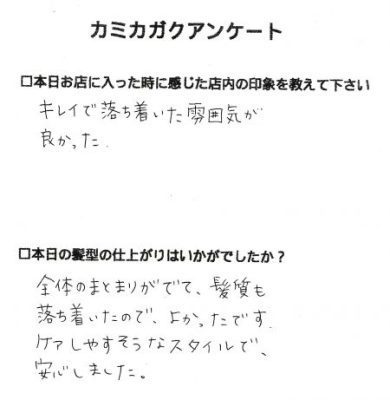 カミカガクアンケート
□本日お店に入った時に感じた店内の印象を教えて下さい
キレイで落ち着いた雰囲気が
良かった.
□本日の髪型の仕上がりはいかがでしたか？
全体のまとまりがでて、髪質も
落ち着いたので、よかったです.
ケアしやすそうなスタイルで、
安心しました。